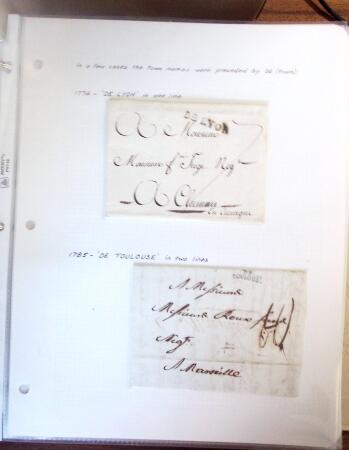 In a few cases the town names were preceded by DE (from)
1736 - 'DE LYON' in one line
DE LYON
A Monsieur
Monsieur
A
En Auvergne
1785 - 'DE TOULOUSE' in two lines
TOULOUSE
A Messieurs
Messieurs Roux
Negt
A Marseille